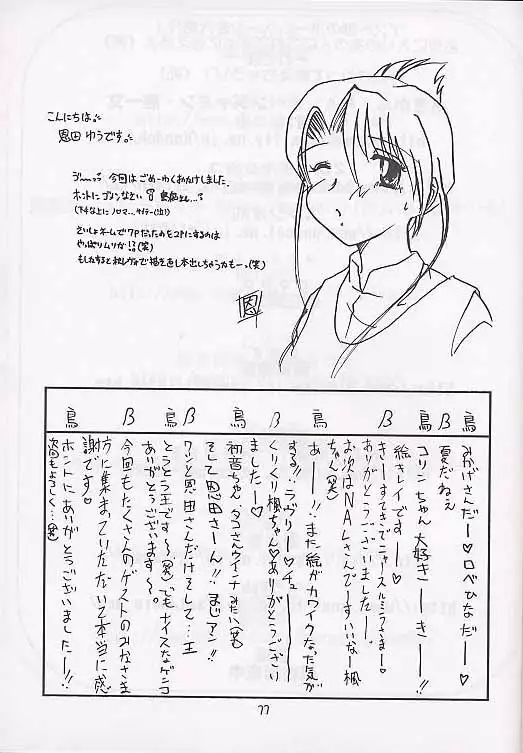 こんにちは。
恩田 ゆうです。
今回はごめーわくおかけしました。
ホントにゴメンなさい
(下手な上にノロマ…サイテー(泣))
さいしょネームで7PだったのをコPにするのは
やっぱりムリか!?(笑)
恩
鳥 みかげさんだー♡ロベひなだー♡
β 夏だねぇ
鳥 コリンちゃん大好きーーきーー!!
絵キレイですーー♡
β きーすてきでニャースルウフさまー♡
ありがとうございましたーー
お次はNALさんでーすいいなー楓
ちゃん(笑)
鳥 あーー!!また絵がカワイクなった気が
する!!ラヴリー♡チッ
β くりくり楓ちゃん♡ありがとうござい
ましたー♡
鳥 初音ちゃん、タコさんウインナみたい(笑)
そして恩田さーん!!まじアン!!
β ワンと恩田さんだけそして…王
鳥 とうとう王ですー(笑)でもナイスなゲンコ
ありがとうございますー。
β 今回もたくさんのゲストのみなさま
方に集まっていただいて本当に感
謝です♡
鳥 ホントにありがとうございましたーー!!
次回もよろしく…(笑)
77